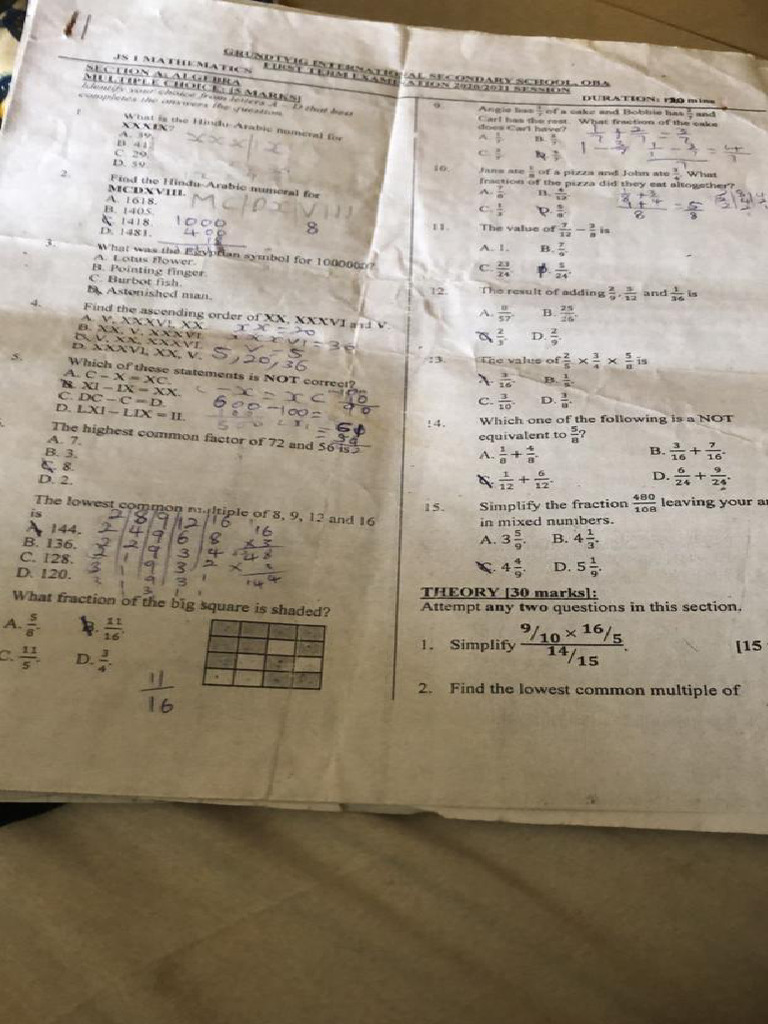 11
GRUNDTVIG INTERNATIONAL SECONDARY SCHOOL, OBA
FIRST TERM EXAMINATION 2020/2021 SESSION
JS 1 MATHEMATICS
DURATION: mins
SECTION A: ALGEBRA
MULTIPLE CHOICE: [5 MARKS]
Identify your choice from letters A – D that best
completes the answers the question.
1. What is the Hindu-Arabic numeral for
XXXIX?
A. 39.
B. 41.
C. 29.
D. 59.
2. Find the Hindu-Arabic numeral for
MCDXVIII.
A. 1618.
B. 1405.
C. 1418.
D. 1481.
1000
400
8
3. What was the Egyptian symbol for 1000000?
A. Lotus flower.
B. Pointing finger.
C. Burbot fish.
D. Astonished man.
4. Find the ascending order of XX, XXXVI and V.
A. V, XXXVI, XX.
B. XX, V, XXXVI.
C. V, XX, XXXVI.
D. XXXVI, XX, V.
XX = 20
XXXVI = 36
V = 5
5, 20, 36
5. Which of these statements is NOT correct?
A. C – X = XC.
B. XI – IX = XX.
C. DC – C = D.
D. LXI – LIX = II.
600 - 100 =
The highest common factor of 72 and 56 is
A. 7.
B. 3.
C. 8.
D. 2.
The lowest common multiple of 8, 9, 12 and 16
is
A. 144.
B. 136.
C. 128.
D. 120.
2 8 9 12 16
2 4 9 6 8
What fraction of the big square is shaded?
A. 5/8.
B. 11/16.
C. 11/5.
D. 3/4.
11/16
9. Angie has of a cake and Bobbie has and
Carl has the rest. What fraction of the cake
does Carl have?
10. Jans ate of a pizza and John ate What
fraction of the pizza did they eat altogether?
11. The value of 7/12 – 3/8 is
A. 1.
B. 7/9.
C. 23/24.
D. 5/24.
12. The result of adding 2/9, 5/12 and 1/36 is
A. 8/57.
B. 25/26.
C. 2/3.
D. 2/9.
13. The value of 2/5 × 3/4 × 5/8 is
A. 3/16.
B.
C. 3/10.
D. 3/8.
14. Which one of the following is a NOT
equivalent to 5/8?
A. 1/8 + 4/8.
B. 3/16 + 7/16.
C. 1/12 + 6/12.
D. 6/24 + 9/24.
15. Simplify the fraction 480/108 leaving your
in mixed numbers.
A. 3 5/9.
B. 4 1/3.
C. 4 4/9.
D. 5 1/9.
THEORY [30 marks]:
Attempt any two questions in this section.
1. Simplify 9/10 × 16/5
14/15.
[15
2. Find the lowest common multiple of